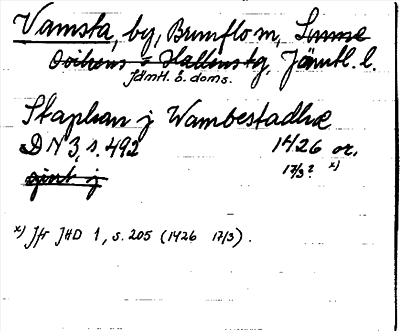 Vamsta, by, Brunflo sn, Sunne
Ovikens o Hallens tg, Jämtl. l.
Jämtl. ö. doms.
Staphan j Wambestadhæ
DN 3, s. 492 1426 or.
17/3? x)
giut j
x) Jfr JHD 1, s. 205 (1426 17/3).